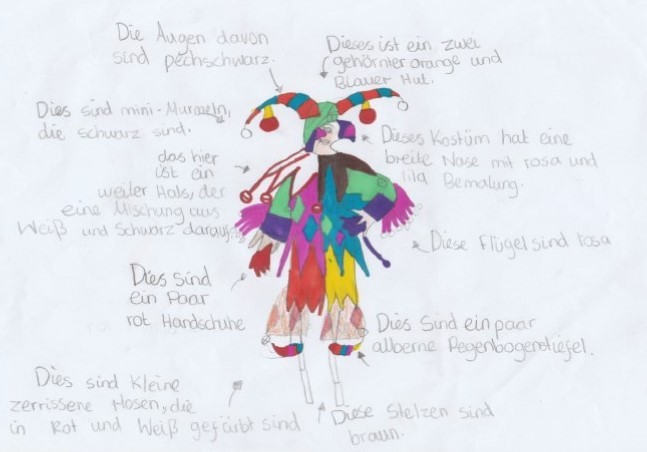 Die Augen davon
sind pechschwarz.
Dieses ist ein zwei
gehörnier orange und
Blauer Hut.
Dies sind mini-Murmeln,
die schwarz sind.
Dieses Kostüm hat eine
breite Nase mit rosa und
lila Bemalung.
das hier
ist ein
weiler Hals, der
eine Mischung aus
Weiß und Schwarz daraus.
Diese Flügel sind rosa
Dies sind
ein Paar
rot Handschuhe
Dies Sind ein paar
alberne Regenbogenstiefel.
Dies sind Kleine
zerrissene Hosen, die
in Rot und Weiß gefärbt sind
Diese Stelzen sind
braun.